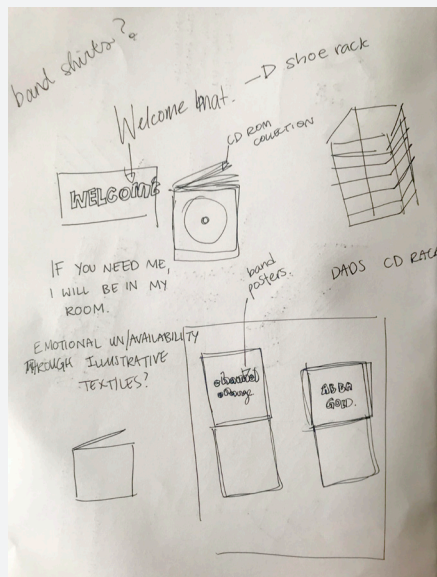 band shirts?
Welcome mat. → shoe rack
CD ROM
COLLECTION
WELCOME
IF YOU NEED ME,
I WILL BE IN MY
ROOM.
band
posters.
DADS CD RACK
EMOTIONAL UN/AVAILABILITY
THROUGH ILLUSTRATIVE
TEXTILES?
channel
orange
ABBA
GOLD.